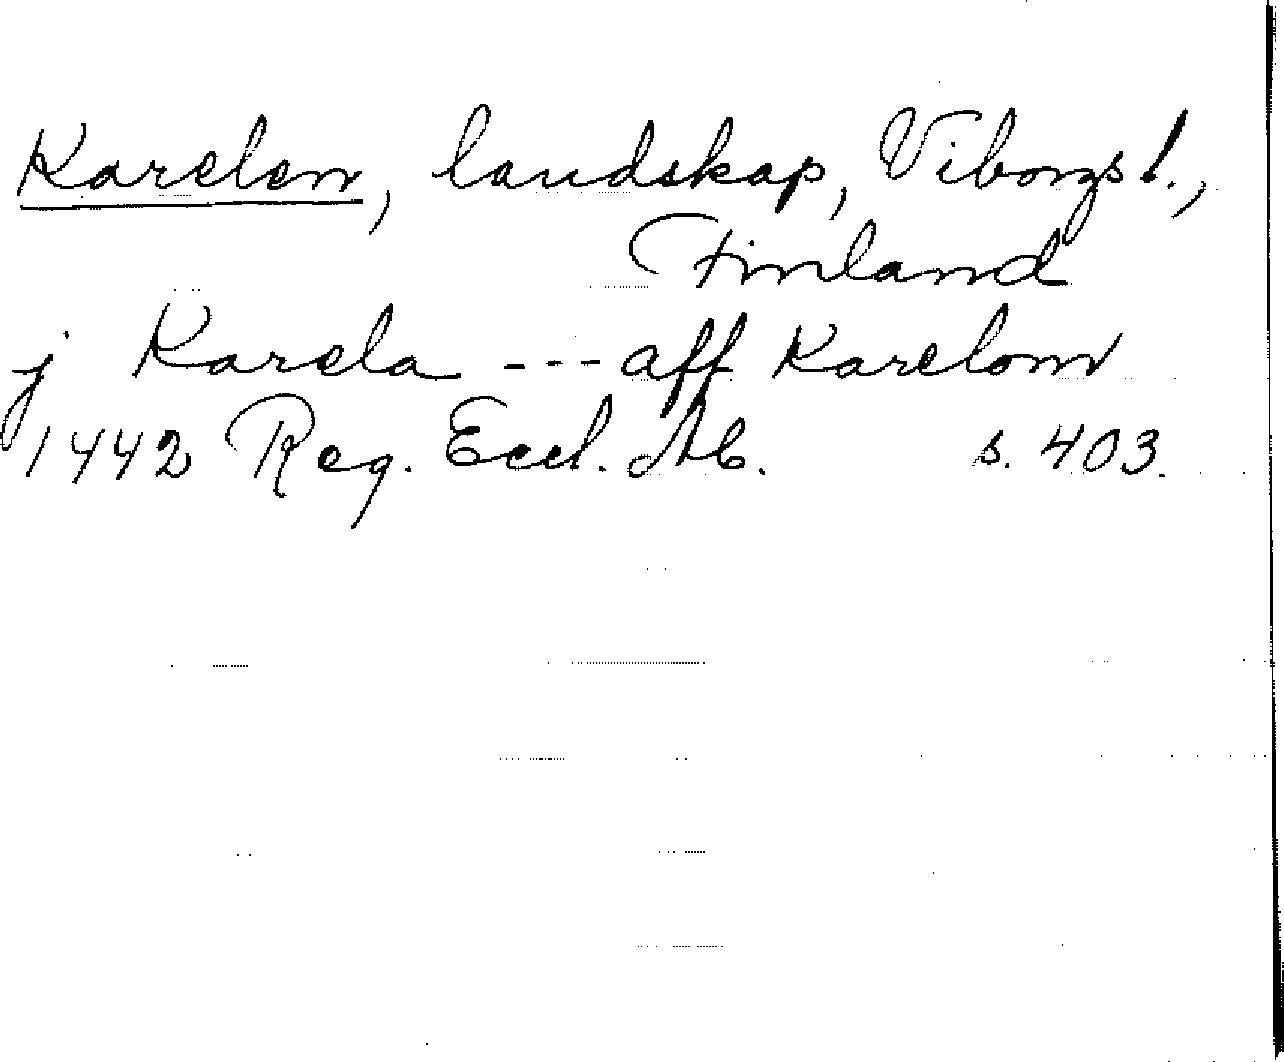 Karelen, landskap, Viborgs l.,
Finland
j Karela --- aff Karelom
1442 Reg. Eccl. Ab. s. 403.